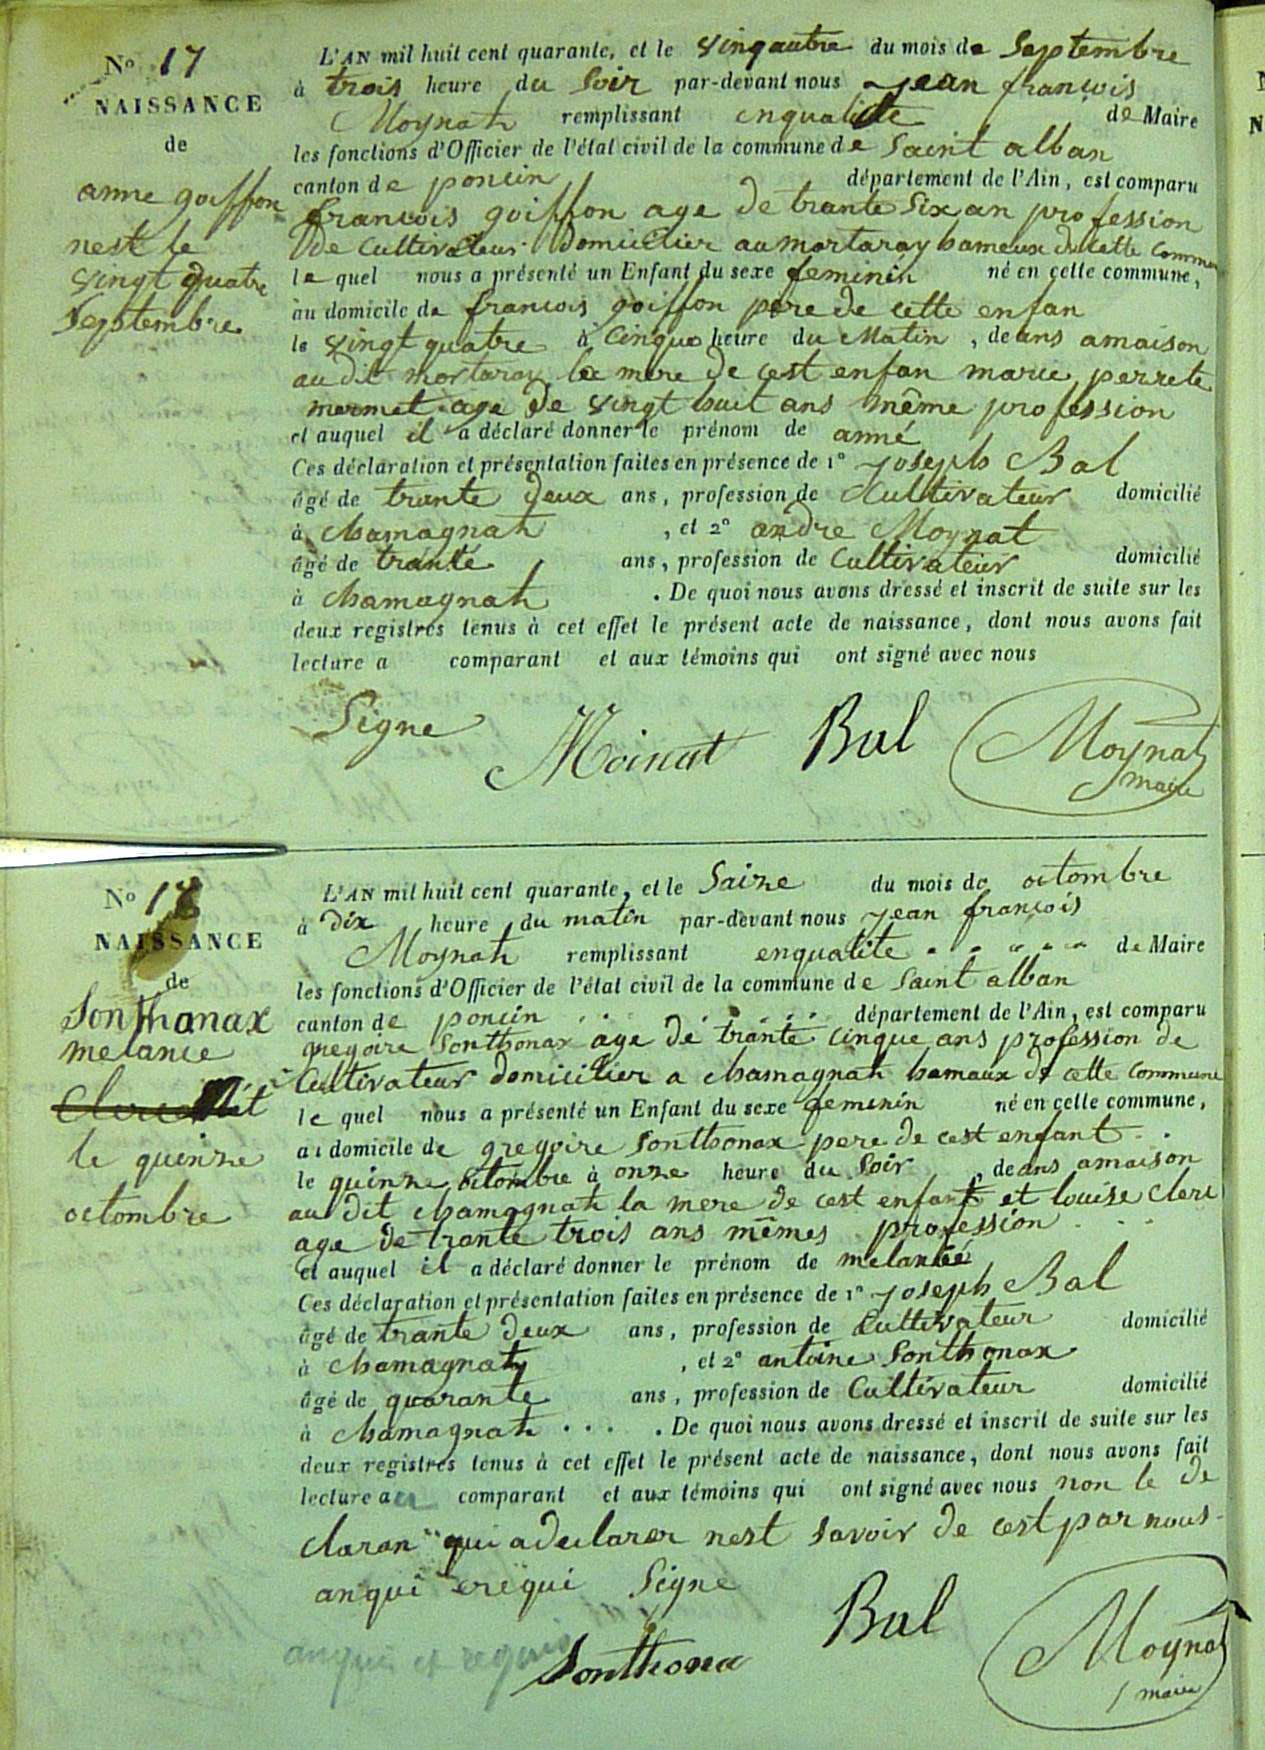 N° 17
NAISSANCE
de
anne goiffon
nest le
vingt quatre
Septembre
L'AN mil huit cent quarante, et le vingautre du mois de Septembre
à trois heure du Soir par-devant nous jean françois
Moynat remplissant enqualite de Maire
les fonctions d'Officier de l'état civil de la commune de Saint alban
canton de poncin département de l'Ain, est comparu
francois goiffon age de trante Six an profession
De Cultivateur domicilier au mortaray hameux de cette Commun
le quel nous a présenté un Enfant du sexe feminin né en cette commune,
au domicile de francois goiffon pere de cette enfan
le vingt quatre à Cinque heure du Matin, de ans amaison
au dit mortaray la mere de cest enfan marie perrete
mermet age de vingt huit ans même profession
et auquel il a déclaré donner le prénom de anné
Ces déclaration et présentation faites en présence de 1° joseph Bal
âgé de trante deux ans, profession de Cultivateur domicilié
à chamagnat, et 2° andre Moynat
âgé de tranté ans, profession de Cultivateur domicilié
à chamagnat. De quoi nous avons dressé et inscrit de suite sur les
deux registres tenus à cet effet le présent acte de naissance, dont nous avons fait
lecture a comparant et aux témoins qui ont signé avec nous
Signe Moinat Bal Moynat
maire
N° 18
NAISSANCE
de
Sonthonax
melanie
Nét
le quinze
octombre
L'AN mil huit cent quarante, et le Saize du mois de octombre
à dix heure du matin par-devant nous jean françois
Moynat remplissant enqualite de Maire
les fonctions d'Officier de l'état civil de la commune de Saint alban
canton de poncin département de l'Ain, est comparu
gregoire Sonthonax age de trante cinque ans profession de
Cultivateur domicilier a chamagnat hamaux de cette Commune
le quel nous a présenté un Enfant du sexe feminin né en cette commune,
au domicile de gregoire Sonthonax pere de cest enfant
le quinze octombre à onze heure du Soir, de ans amaison
au dit chamagnat la mere de cest enfant et louise Clerc
age de trante trois ans mêmes profession
et auquel il a déclaré donner le prénom de melanie
Ces déclaration et présentation faites en présence de 1° joseph Bal
âgé de trante deux ans, profession de Cultivateur domicilié
à chamagnat, et 2° antoine Sonthonax
âgé de quarante ans, profession de Cultivateur domicilié
à chamagnat . . . . De quoi nous avons dressé et inscrit de suite sur les
deux registres tenus à cet effet le présent acte de naissance, dont nous avons fait
lecture au comparant et aux témoins qui ont signé avec nous non le de
claran qui a declarer nest savoir de cest par nous
anqui erequi Signe
anquis et requis Sonthona Bal Moynat
maire